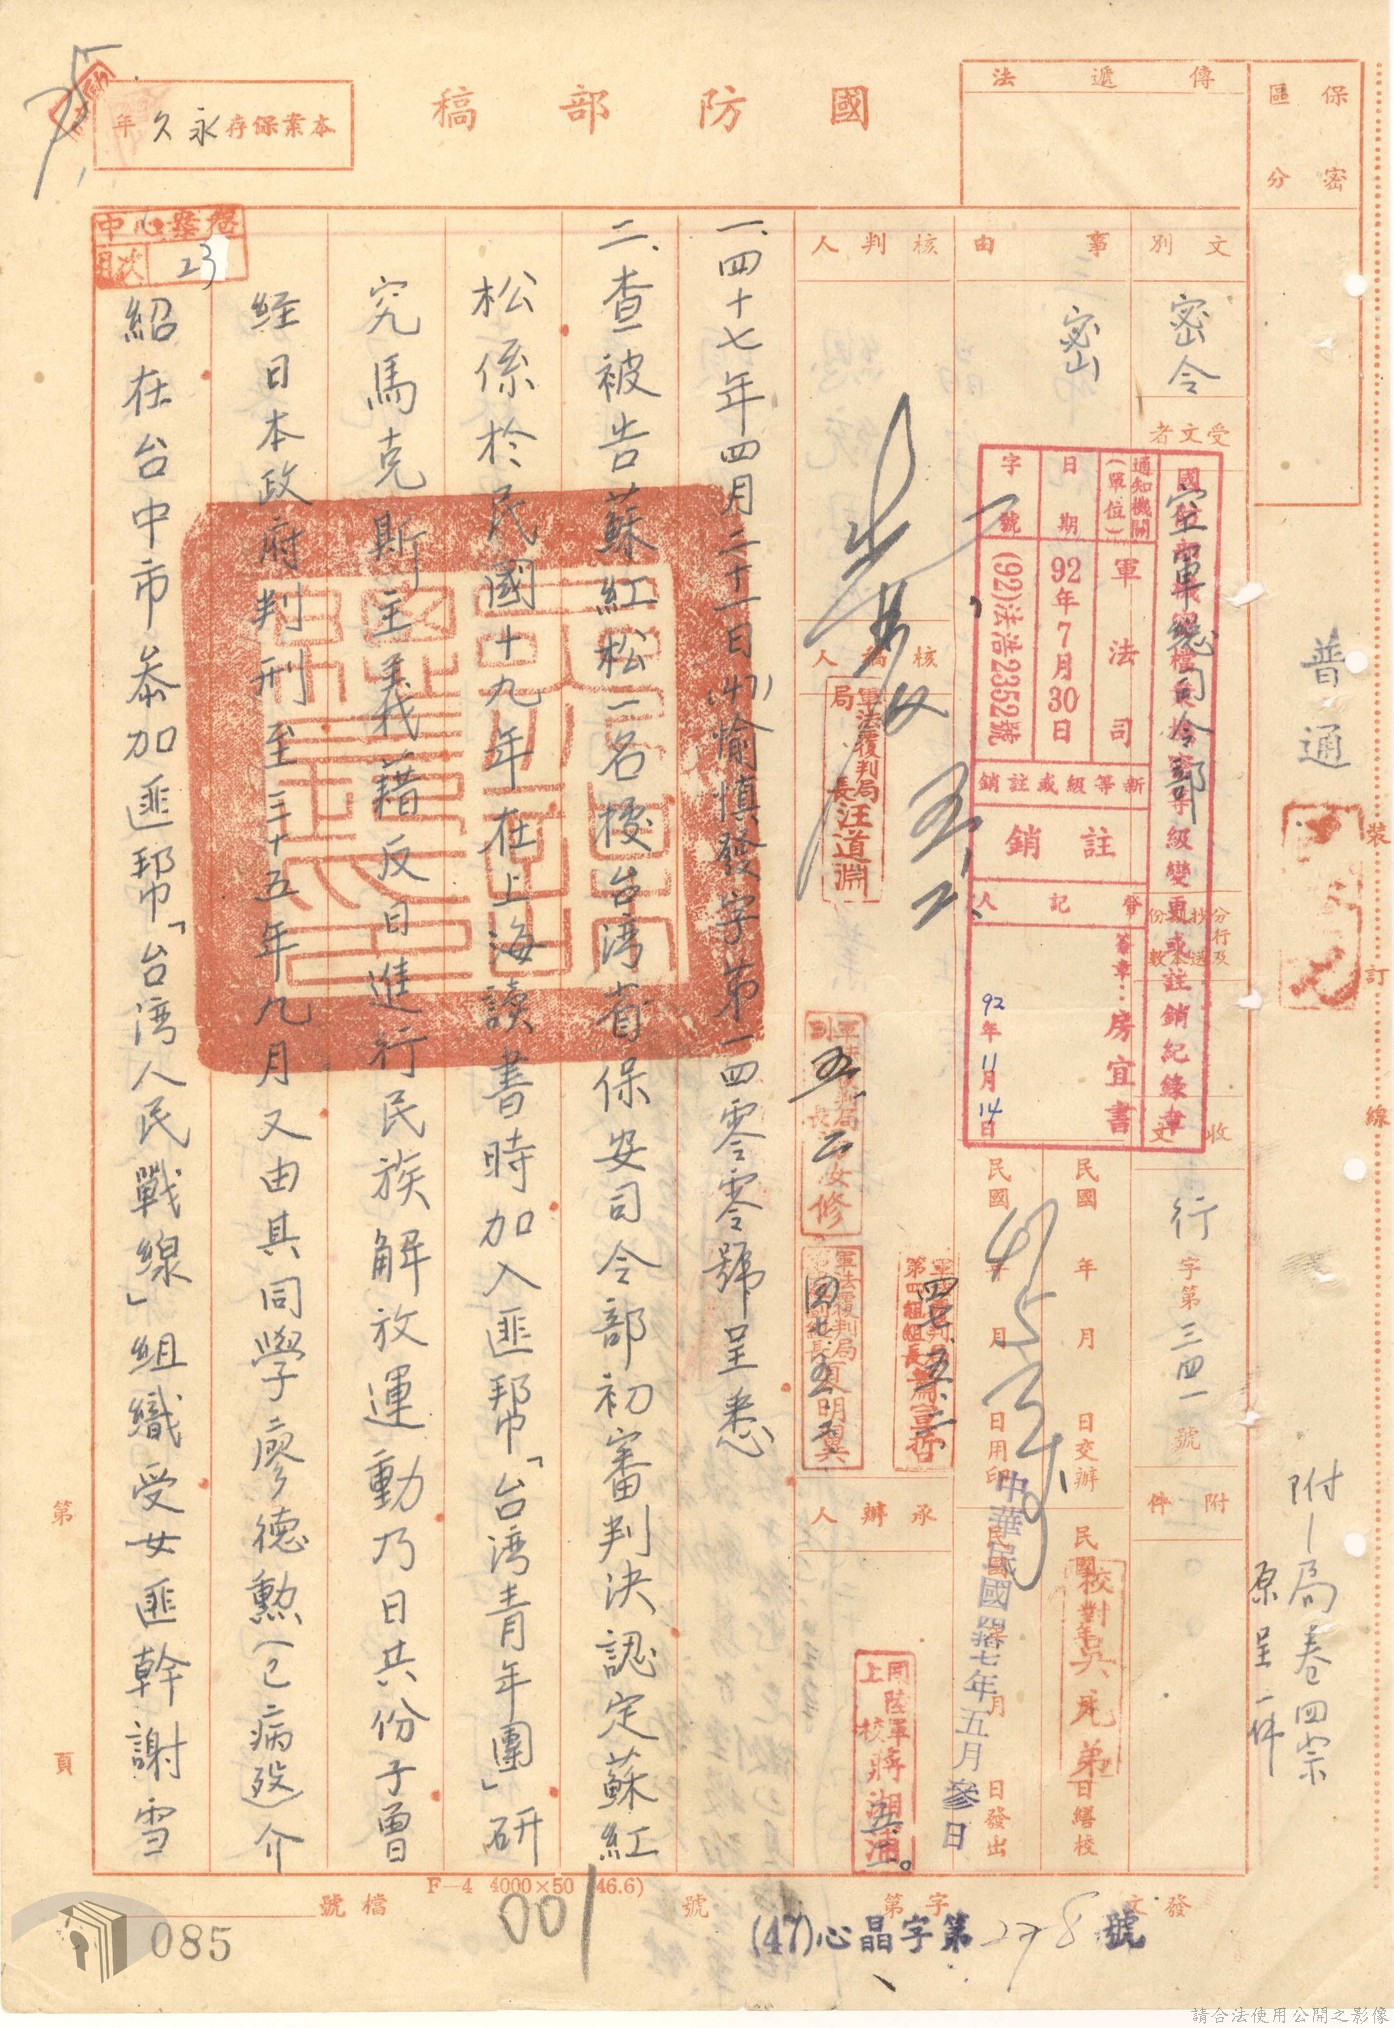 保密
區分
傳遞法
國防部稿
本案保存永久年
中心案卷
目次
23
普通
附一局卷四宗
原呈一件
裝
訂
線
文別
密令
受文者
空軍總司令部
分行及
抄送
份數
收文
行字第三四一號
附件
事由
密
國防部機密檔案機密等級變更或註銷紀錄章
通知機關(單位)
軍法司
日期
92年7月30日
字號
(92)法浩2352號
新等級或註銷
註銷
登記人
簽章:房宜書
92年11月14日
民國 年 月 日交辦
民國 年 月 日繕校
校對吳允弟
民國 年 月 日用印
民國 年 月 日發出
中華民國肆拾七年五月參日
核判人
核稿人
軍法覆判局局長汪道淵
軍法覆判局
第四組組長
四七、五、二、
軍法覆判局
明翼
承辦人
同陸軍上校蔣湘浦
一、四十七年四月二十一日(47)愉慎發字第一四零零號呈悉
二、查被告蘇紅松一名據台湾省保安司令部初審判決認定蘇紅
松係於民國十九年在上海讀書時加入匪帮「台湾青年團」研
究馬克斯主義藉反日進行民族解放運動乃日共份子曾
經日本政府判刑至三十五年九月又由其同學廖德勲(已病歿)介
紹在台中市參加匪帮「台湾人民戰線」組織受女匪幹謝雪
第
頁
F—4 4000×50 (46.6)
檔號
001
發文 字第 號
(47)心晶字第278號
085
請合法使用公開之影像